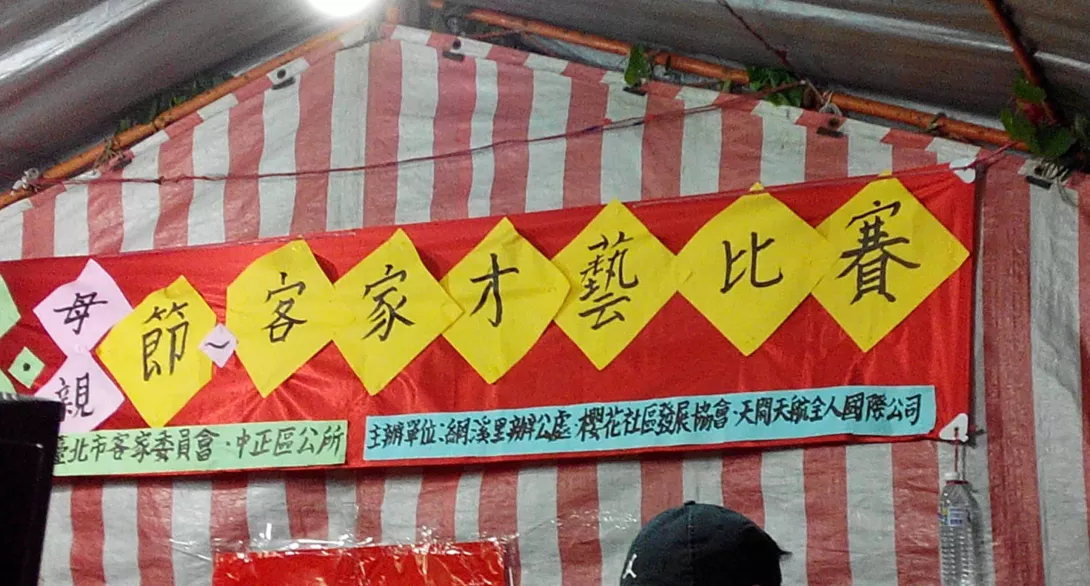 母親節~客家才藝比賽
臺北市客家委員會·中正區公所
主辦單位:網溪里辦公處·櫻花社區發展協會·天閤天航全人國際公司